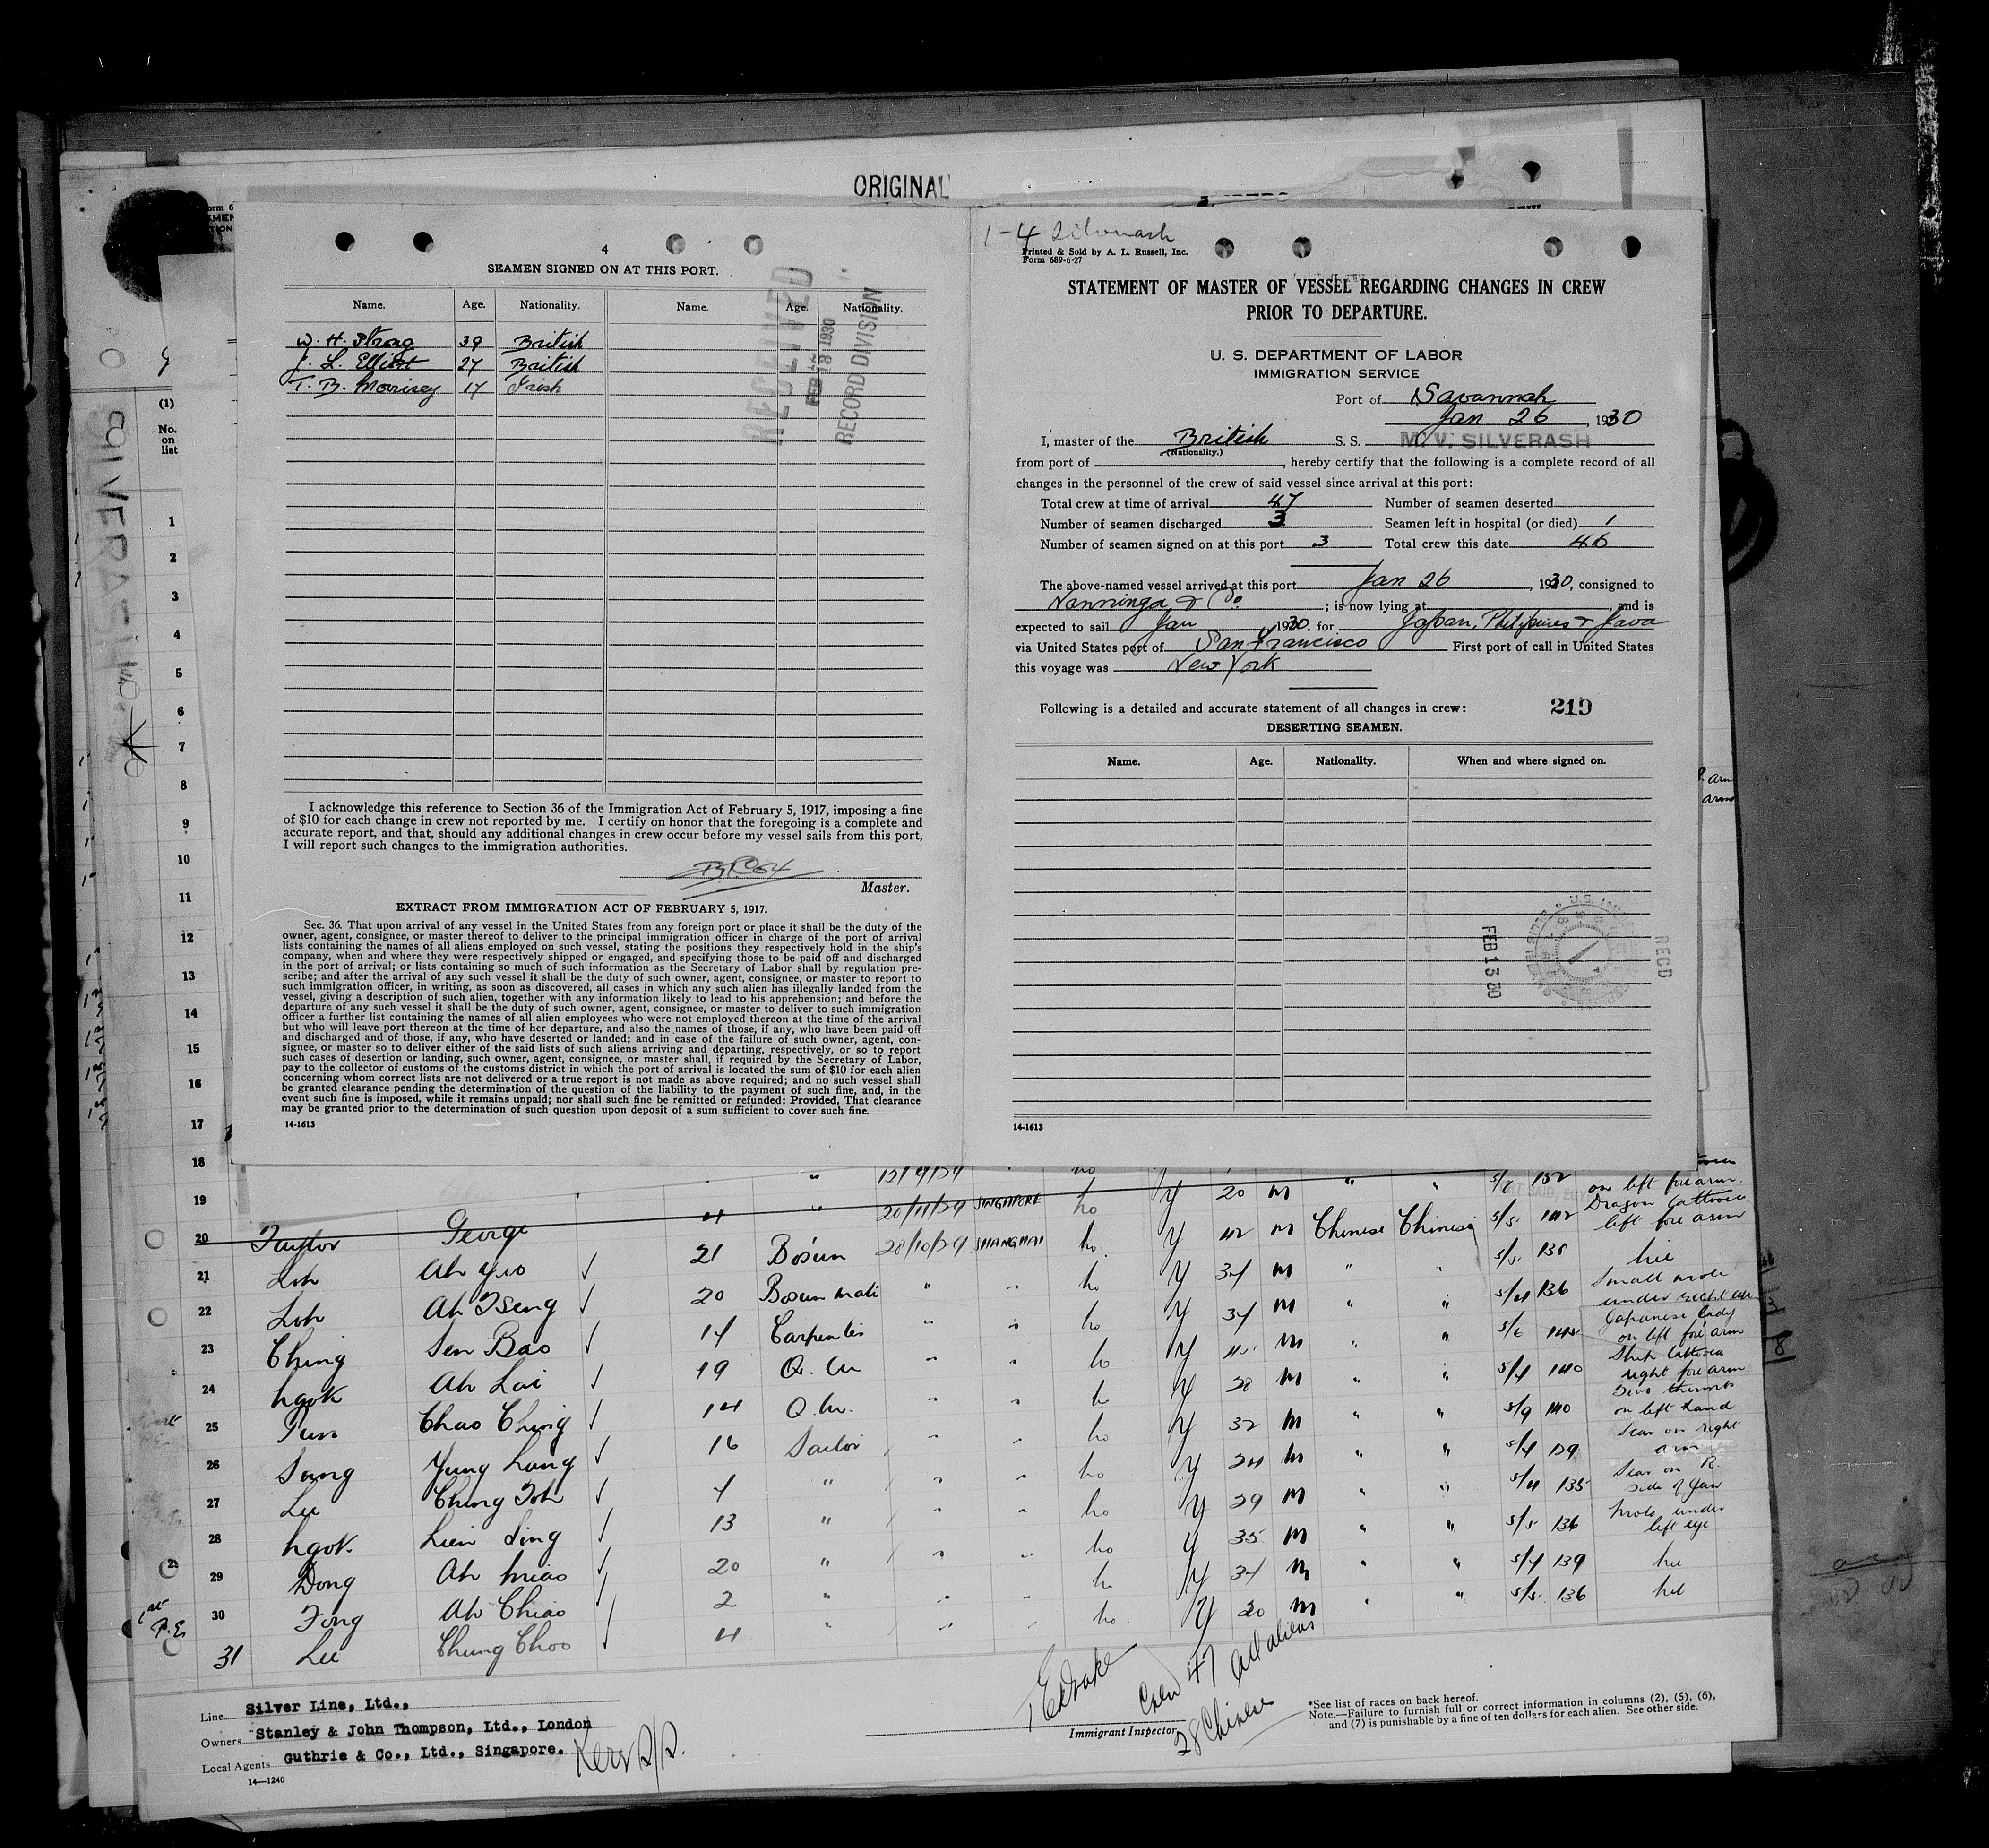 ORIGINAL
4
SEAMEN SIGNED ON AT THIS PORT.
Name. Age. Nationality. Name. Age. Nationality.
W. H. Strong 39 British
J. L. Elliott 27 British
T. B. Morrisey 17 Irish
RECEIVED
FEB 18 1930
RECORD DIVISION
I acknowledge this reference to Section 36 of the Immigration Act of February 5, 1917, imposing a fine
of $10 for each change in crew not reported by me. I certify on honor that the foregoing is a complete and
accurate report, and that, should any additional changes in crew occur before my vessel sails from this port,
I will report such changes to the immigration authorities.
Master.
EXTRACT FROM IMMIGRATION ACT OF FEBRUARY 5, 1917.
Sec. 36. That upon arrival of any vessel in the United States from any foreign port or place it shall be the duty of the
owner, agent, consignee, or master thereof to deliver to the principal immigration officer in charge of the port of arrival
lists containing the names of all aliens employed on such vessel, stating the positions they respectively hold in the ship's
company, when and where they were respectively shipped or engaged, and specifying those to be paid off and discharged
in the port of arrival; or lists containing so much of such information as the Secretary of Labor shall by regulation pre-
scribe; and after the arrival of any such vessel it shall be the duty of such owner, agent, consignee, or master to report to
such immigration officer, in writing, as soon as discovered, all cases in which any such alien has illegally landed from the
vessel, giving a description of such alien, together with any information likely to lead to his apprehension; and before the
departure of any such vessel it shall be the duty of such owner, agent, consignee, or master to deliver to such immigration
officer a further list containing the names of all alien employees who were not employed thereon at the time of the arrival
but who will leave port thereon at the time of her departure, and also the names of those, if any, who have been paid off
and discharged and of those, if any, who have deserted or landed; and in case of the failure of such owner, agent, con-
signee, or master so to deliver either of the said lists of such aliens arriving and departing, respectively, or so to report
such cases of desertion or landing, such owner, agent, consignee, or master shall, if required by the Secretary of Labor,
pay to the collector of customs of the customs district in which the port of arrival is located the sum of $10 for each alien
concerning whom correct lists are not delivered or a true report is not made as above required; and no such vessel shall
be granted clearance pending the determination of the question of the liability to the payment of such fine, and, in the
event such fine is imposed, while it remains unpaid; nor shall such fine be remitted or refunded: Provided, That clearance
may be granted prior to the determination of such question upon deposit of a sum sufficient to cover such fine.
14-1613
1-4 Silverash
Printed & Sold by A. L. Russell, Inc.
Form 689-6-27
STATEMENT OF MASTER OF VESSEL REGARDING CHANGES IN CREW
PRIOR TO DEPARTURE.
U. S. DEPARTMENT OF LABOR
IMMIGRATION SERVICE
Port of Savannah
Jan 26, 1930
I, master of the British S. S. M. V. SILVERASH
(Nationality.)
from port of , hereby certify that the following is a complete record of all
changes in the personnel of the crew of said vessel since arrival at this port:
Total crew at time of arrival 47 Number of seamen deserted
Number of seamen discharged 3 Seamen left in hospital (or died) 1
Number of seamen signed on at this port 3 Total crew this date 46
The above-named vessel arrived at this port Jan 26, 1930, consigned to
Nanninga & Co. ; is now lying at , and is
expected to sail Jan 1930. for Japan, Philipines & Java
via United States port of San Francisco First port of call in United States
this voyage was New York
Following is a detailed and accurate statement of all changes in crew: 219
DESERTING SEAMEN.
Name. Age. Nationality. When and where signed on.
FEB 13 30
RECD
14-1613
SILVERASH
(1)
No.
on
list
1
2
3
4
5
6
7
8
9
10
11
12
13
14
15
16
17
18
19
20 Taylor George 4 " 20/11/29 SINGAPORE no y 20 m " "
21 Loh Ah Yuo 21 Bosun 28/10/29 SHANGHAI no y 42 m Chinese Chinese left fore arm
22 Loh Ah Tseng 20 Bosun mate " " no y 34 m " "
23 Ching Sen Bao 14 Carpenter " " no y 34 m " " Small mole under right eye
24 Ngok Ah Lai 19 Q. M. " " no y m " " Japanese lady on left fore arm
25 Pun Chao Ching 14 Q. M. " " no y 28 m " " 140 right fore arm
26 Sang Yung Lang 16 Sailor " " no y 32 m " " 5/9 140 on left hand
27 Lee Ching Toh " " " no y 24 m " " 129 Scar on right arm
28 Ngok Lien Sing 13 " " " no y 29 m " " 135 Scar on R. side of jaw
29 Dong Ah Miao 20 " " " no y 35 m " " 5/5 136 Mole under left eye
30 Fong Ah Chiao 2 " " " no y 34 m " " 139
31 Lee Chung Choo 4 " " " no y 20 m " " 5/5 136
Line Silver Line, Ltd.,
Owners Stanley & John Thompson, Ltd., London
Local Agents Guthrie & Co., Ltd., Singapore.
14—1240
Immigrant Inspector
Crew 47 all aliens
28 Chinese
*See list of races on back hereof.
Note.—Failure to furnish full or correct information in columns (2), (5), (6),
and (7) is punishable by a fine of ten dollars for each alien. See other side.